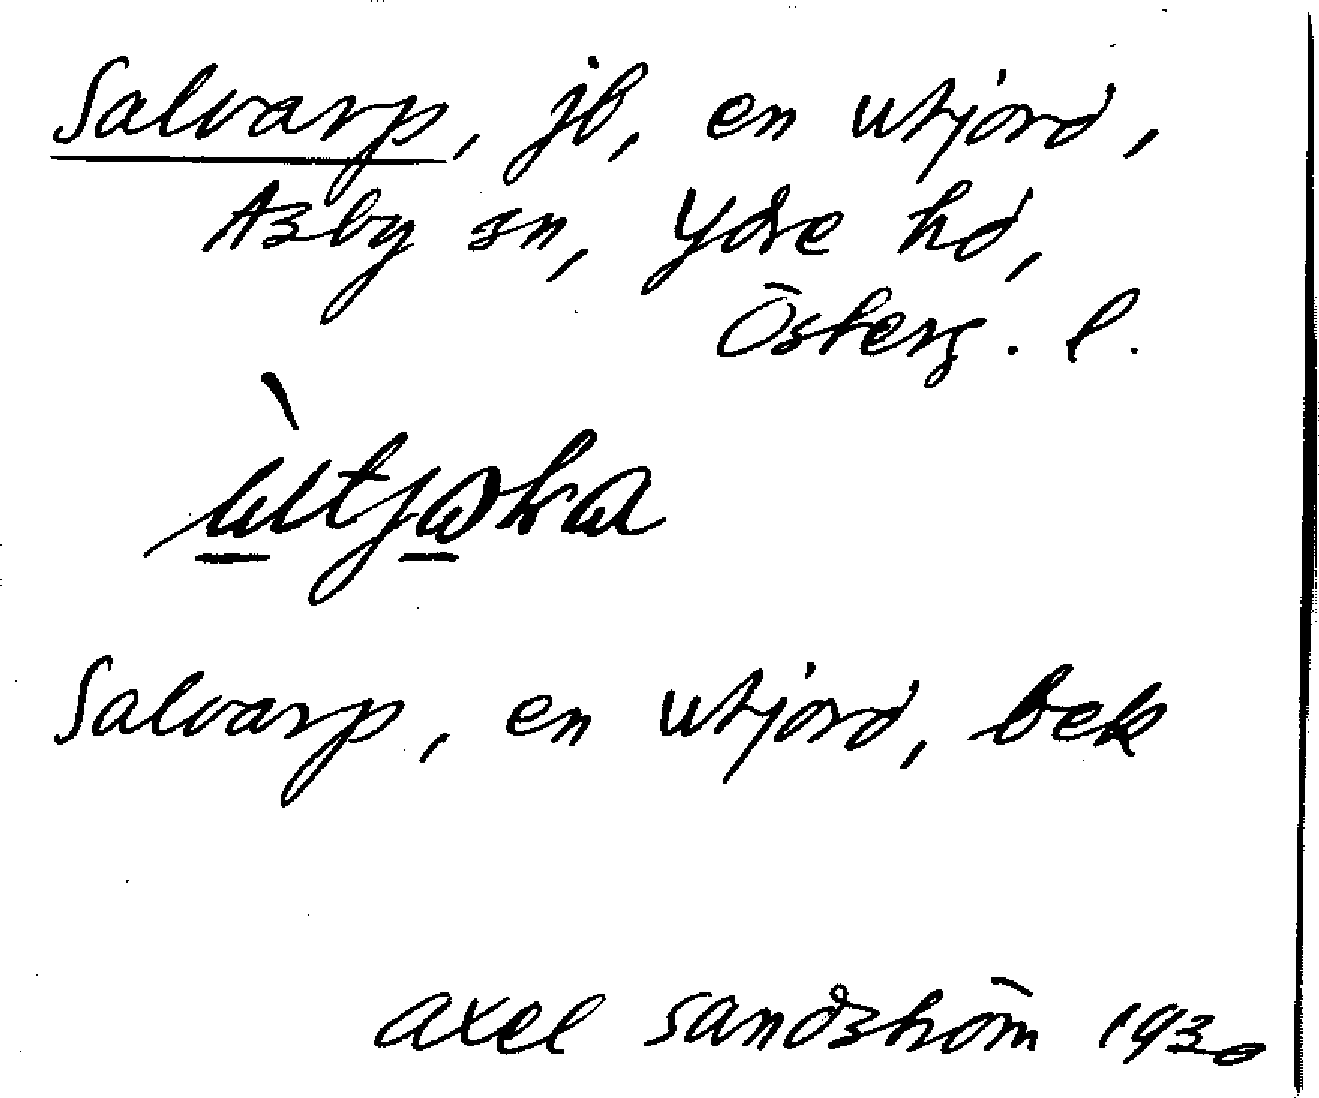 Salvarp, jb, en utjord,
Asby sn, Ydre hd,
Österg. l.
Salvarp, en utjord, bek
Axel Sandström 1930